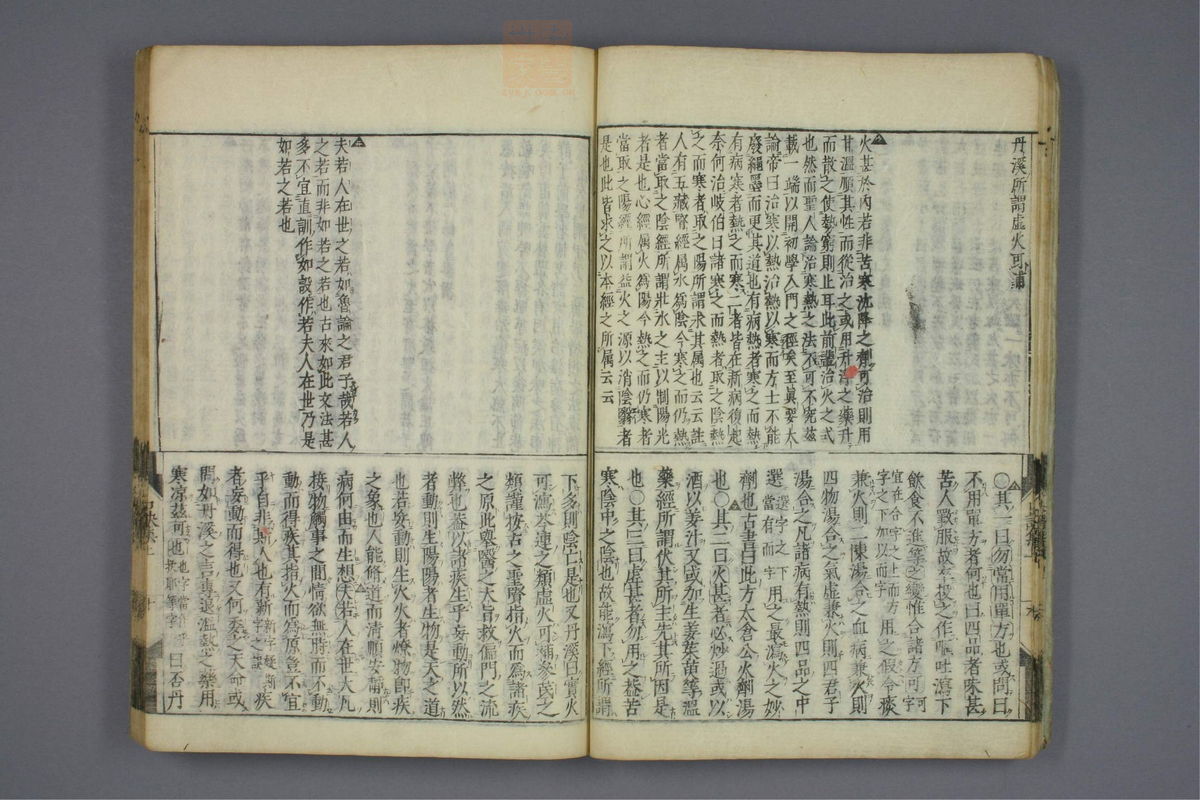 丹溪所謂虛火可補
火甚於内若非苦寒沈降之劑可治則用
甘溫順其性而從治之或用升浮之藥升
而散之使勢窮則止耳此前輩治火之式
也然而聖人論治寒熱之法不可不究茲
載一端以開初學入門之徑矣至眞要大
論帝曰治寒以熱治熱以寒而方士不能
廢繩墨而更其道也有病熱者寒之而熱
有病寒者熱之而寒二者皆在新病復起
奈何治岐伯曰諸寒之而熱者取之陰熱
之而寒者取之陽所謂求其属也云云註
人有五藏腎經属水爲陰今寒之而仍熱
者當取之陰經所謂壯水之主以制陽光
者是也心經属火爲陽今熱之而仍寒者
當取之陽經所謂益火之源以消陰翳者
是也此皆求之以本經之所属云云
○其一曰勿當用單方也或問曰
不用單方者何也曰四品者味甚
苦人歎服故單投之作嘔吐瀉下
飲食不進等之變惟合諸方可
可宜在合字之上而方用之假令痰
字之下加以而字
兼火則二陳湯合之血病兼火則
四物湯合之氣虛兼火則四君子
湯合之凡諸病有熱則四品之中
選選字之下當有而字用之最瀉火之妙
劑也古書曰此方太倉公火劑湯
也○其二曰火甚者必炒過或以
酒以姜汁又或加生姜茱萸等溫
藥經所謂伏其所主先其所因是
也○其三曰虛甚者勿用之蓋苦
寒陰中之陰也故能瀉下經所謂
夫若人在世之若如魯論之君子哉若人
之若而非如若之若也古來如此文法甚
多不宜直訓作如設作若夫人在世乃是
如若之若也
下多則陰亡是也又丹溪曰實火
可瀉芩連之類虛火可補參芪之
類謹按古之聖賢指火而爲諸疾
之原此與醫之大旨救偏門之流
弊也蓋以諸疾生乎妄動所以然
者動則生陽陽者生物是天之道
也若妄動則生火火者燎物即疾
之象也人能脩道而清順安補則
病何由而生想夫若人在世大凡
接物觸事之間情欲無時而不動
動而得疾其指火而爲原豈不宜
乎自非斯人也有新新字疑斯字之誤疾
者妄動而得也又何委之天命或
問如丹溪之言專退溫熱之藥用
寒涼茲可也曰否丹